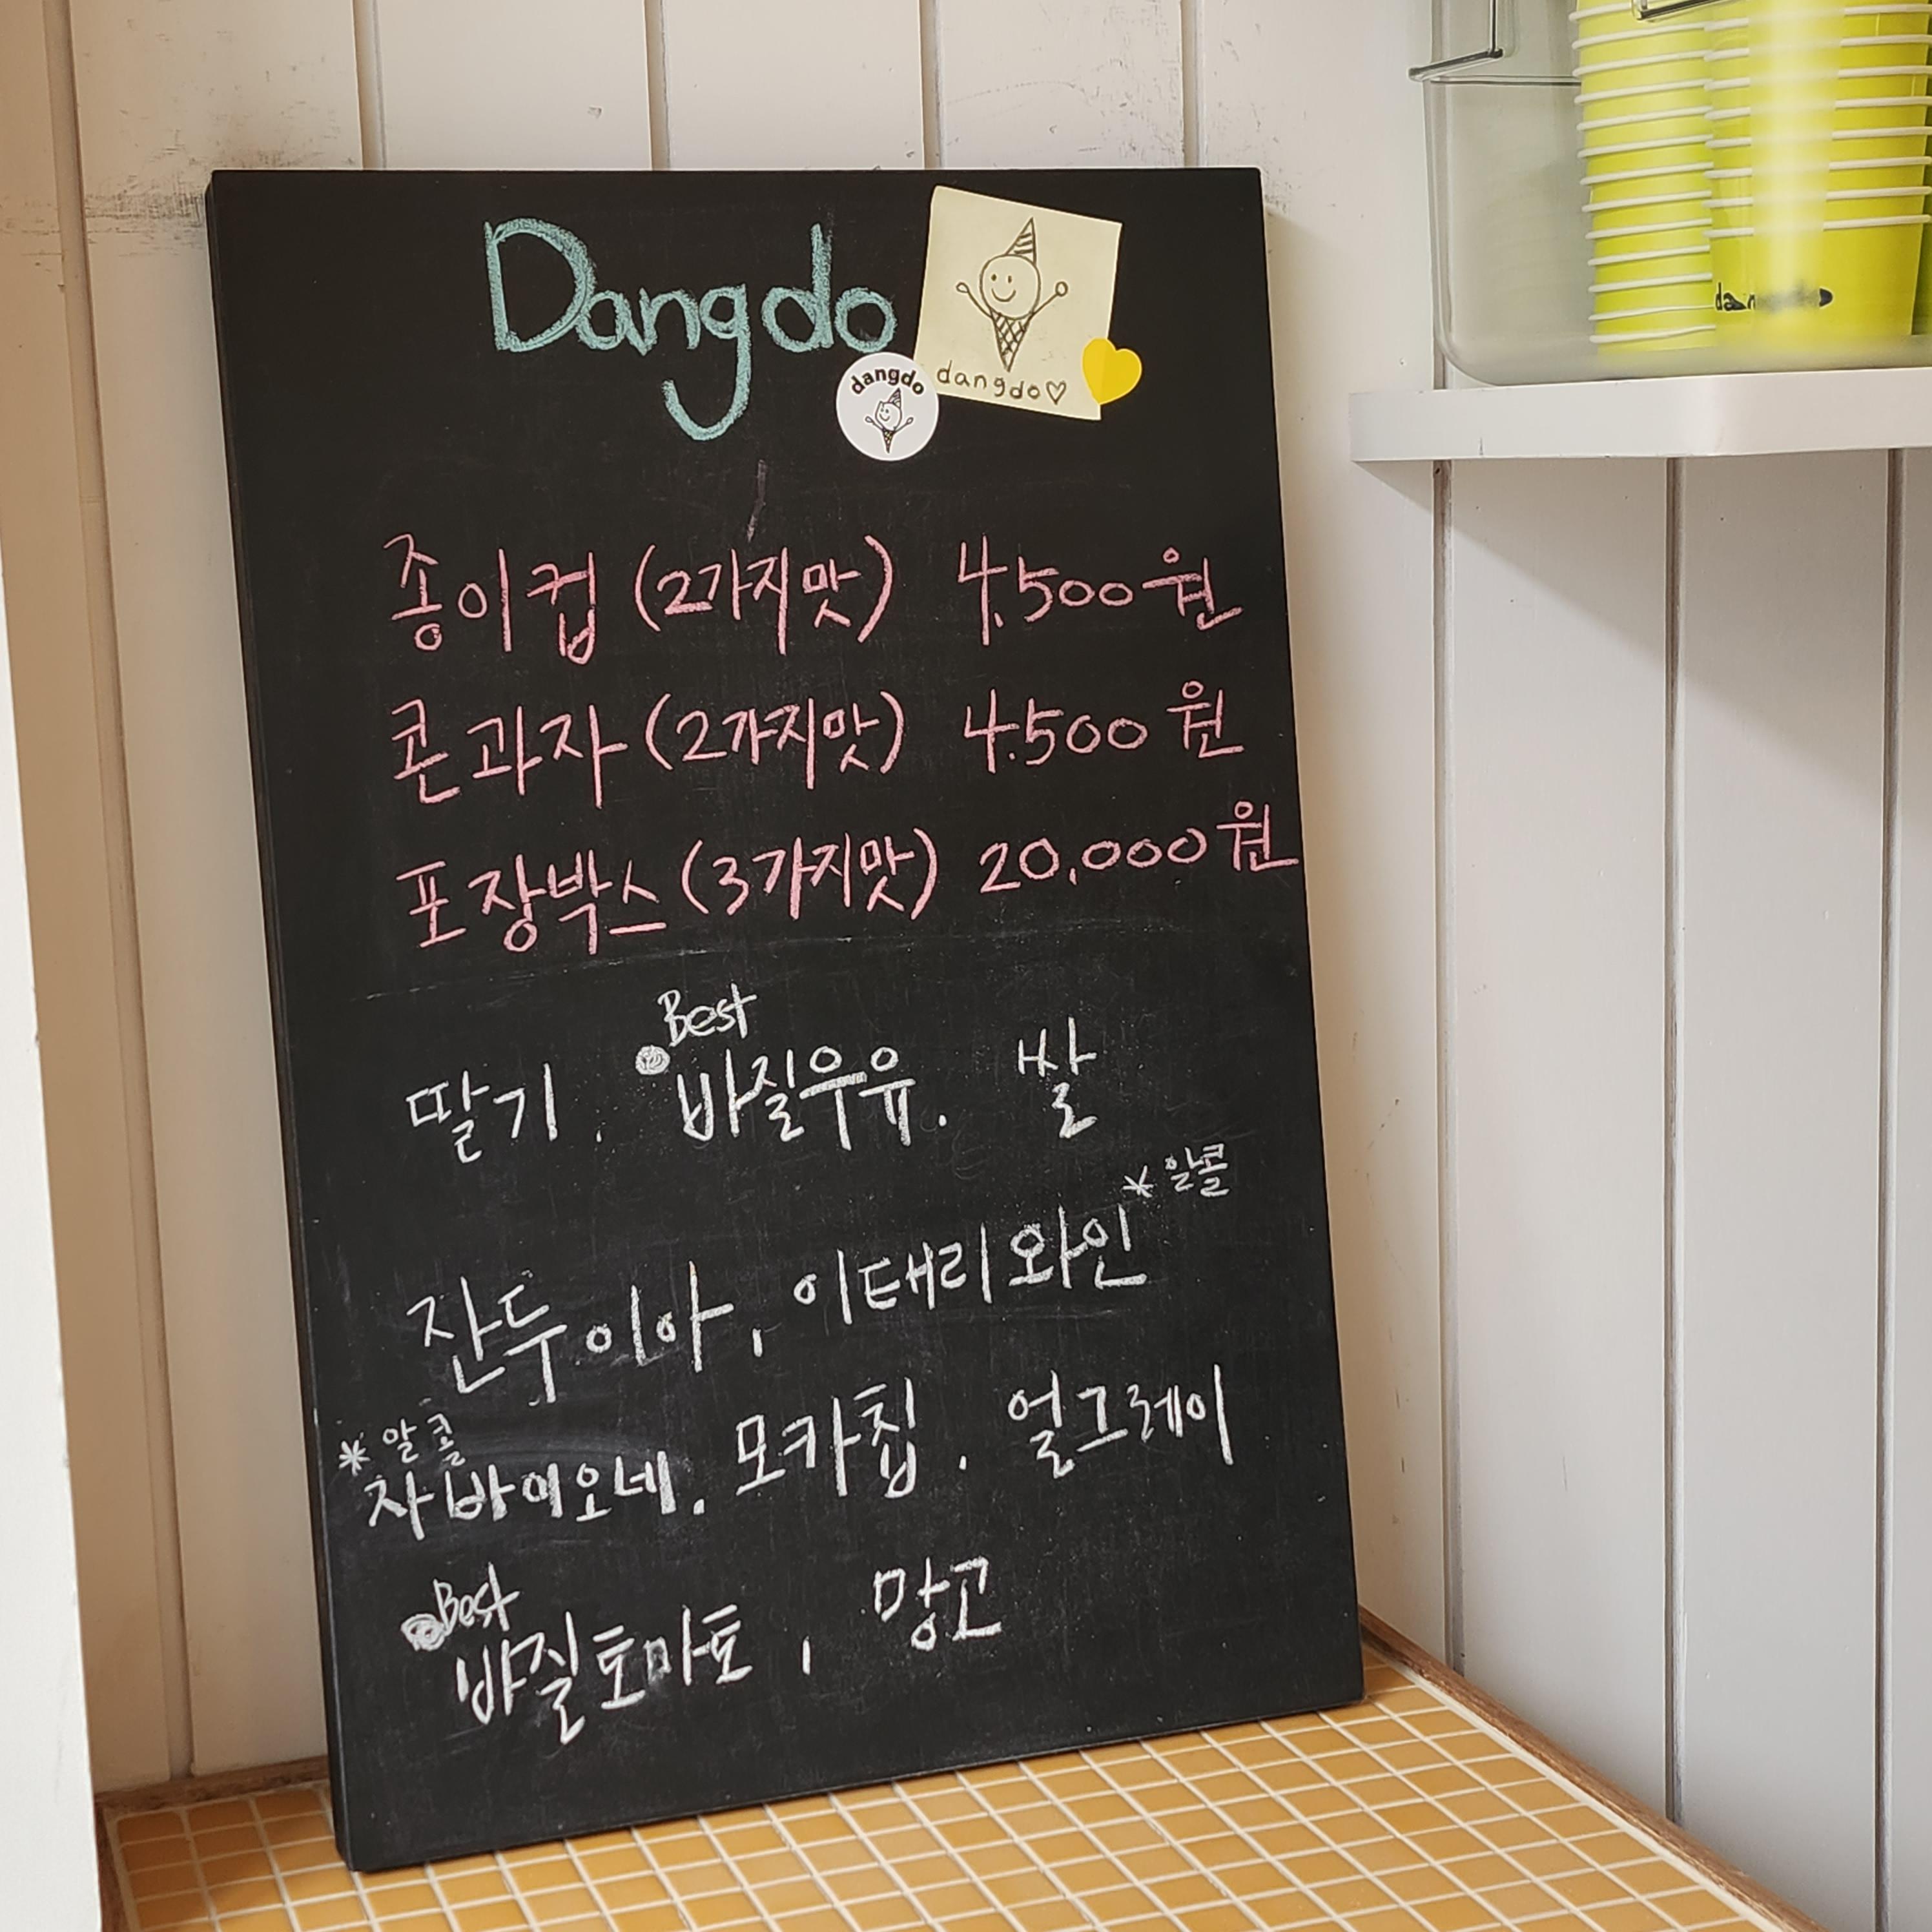 Dangdo
dangdo♡
dangdo
종이컵 (2가지맛) 4.500원
콘과자 (2가지맛) 4.500원
포장박스 (3가지맛) 20,000원
Best
딸기. 바질우유. 쌀
*알콜
잔두이아, 이태리와인
*알콜
자바이오네. 모카칩. 얼그레이
Best
바질토마토, 망고
dangdo